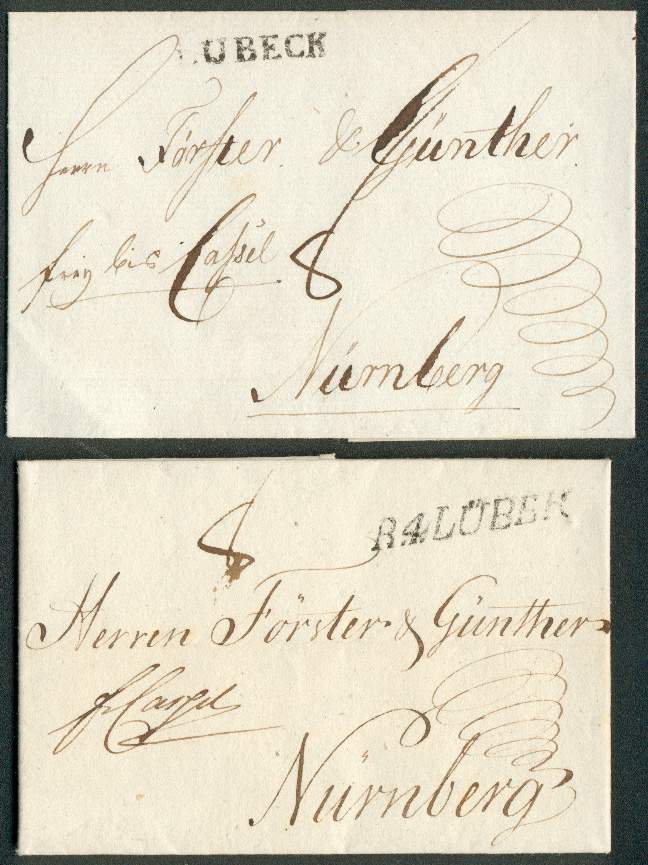 LUBECK
Herrn Förster & Günther.
frey bis Cassel 8
Nürnberg
8
R4LÜBEK
Herren Förster & Günther
fr Cassel
Nürnberg